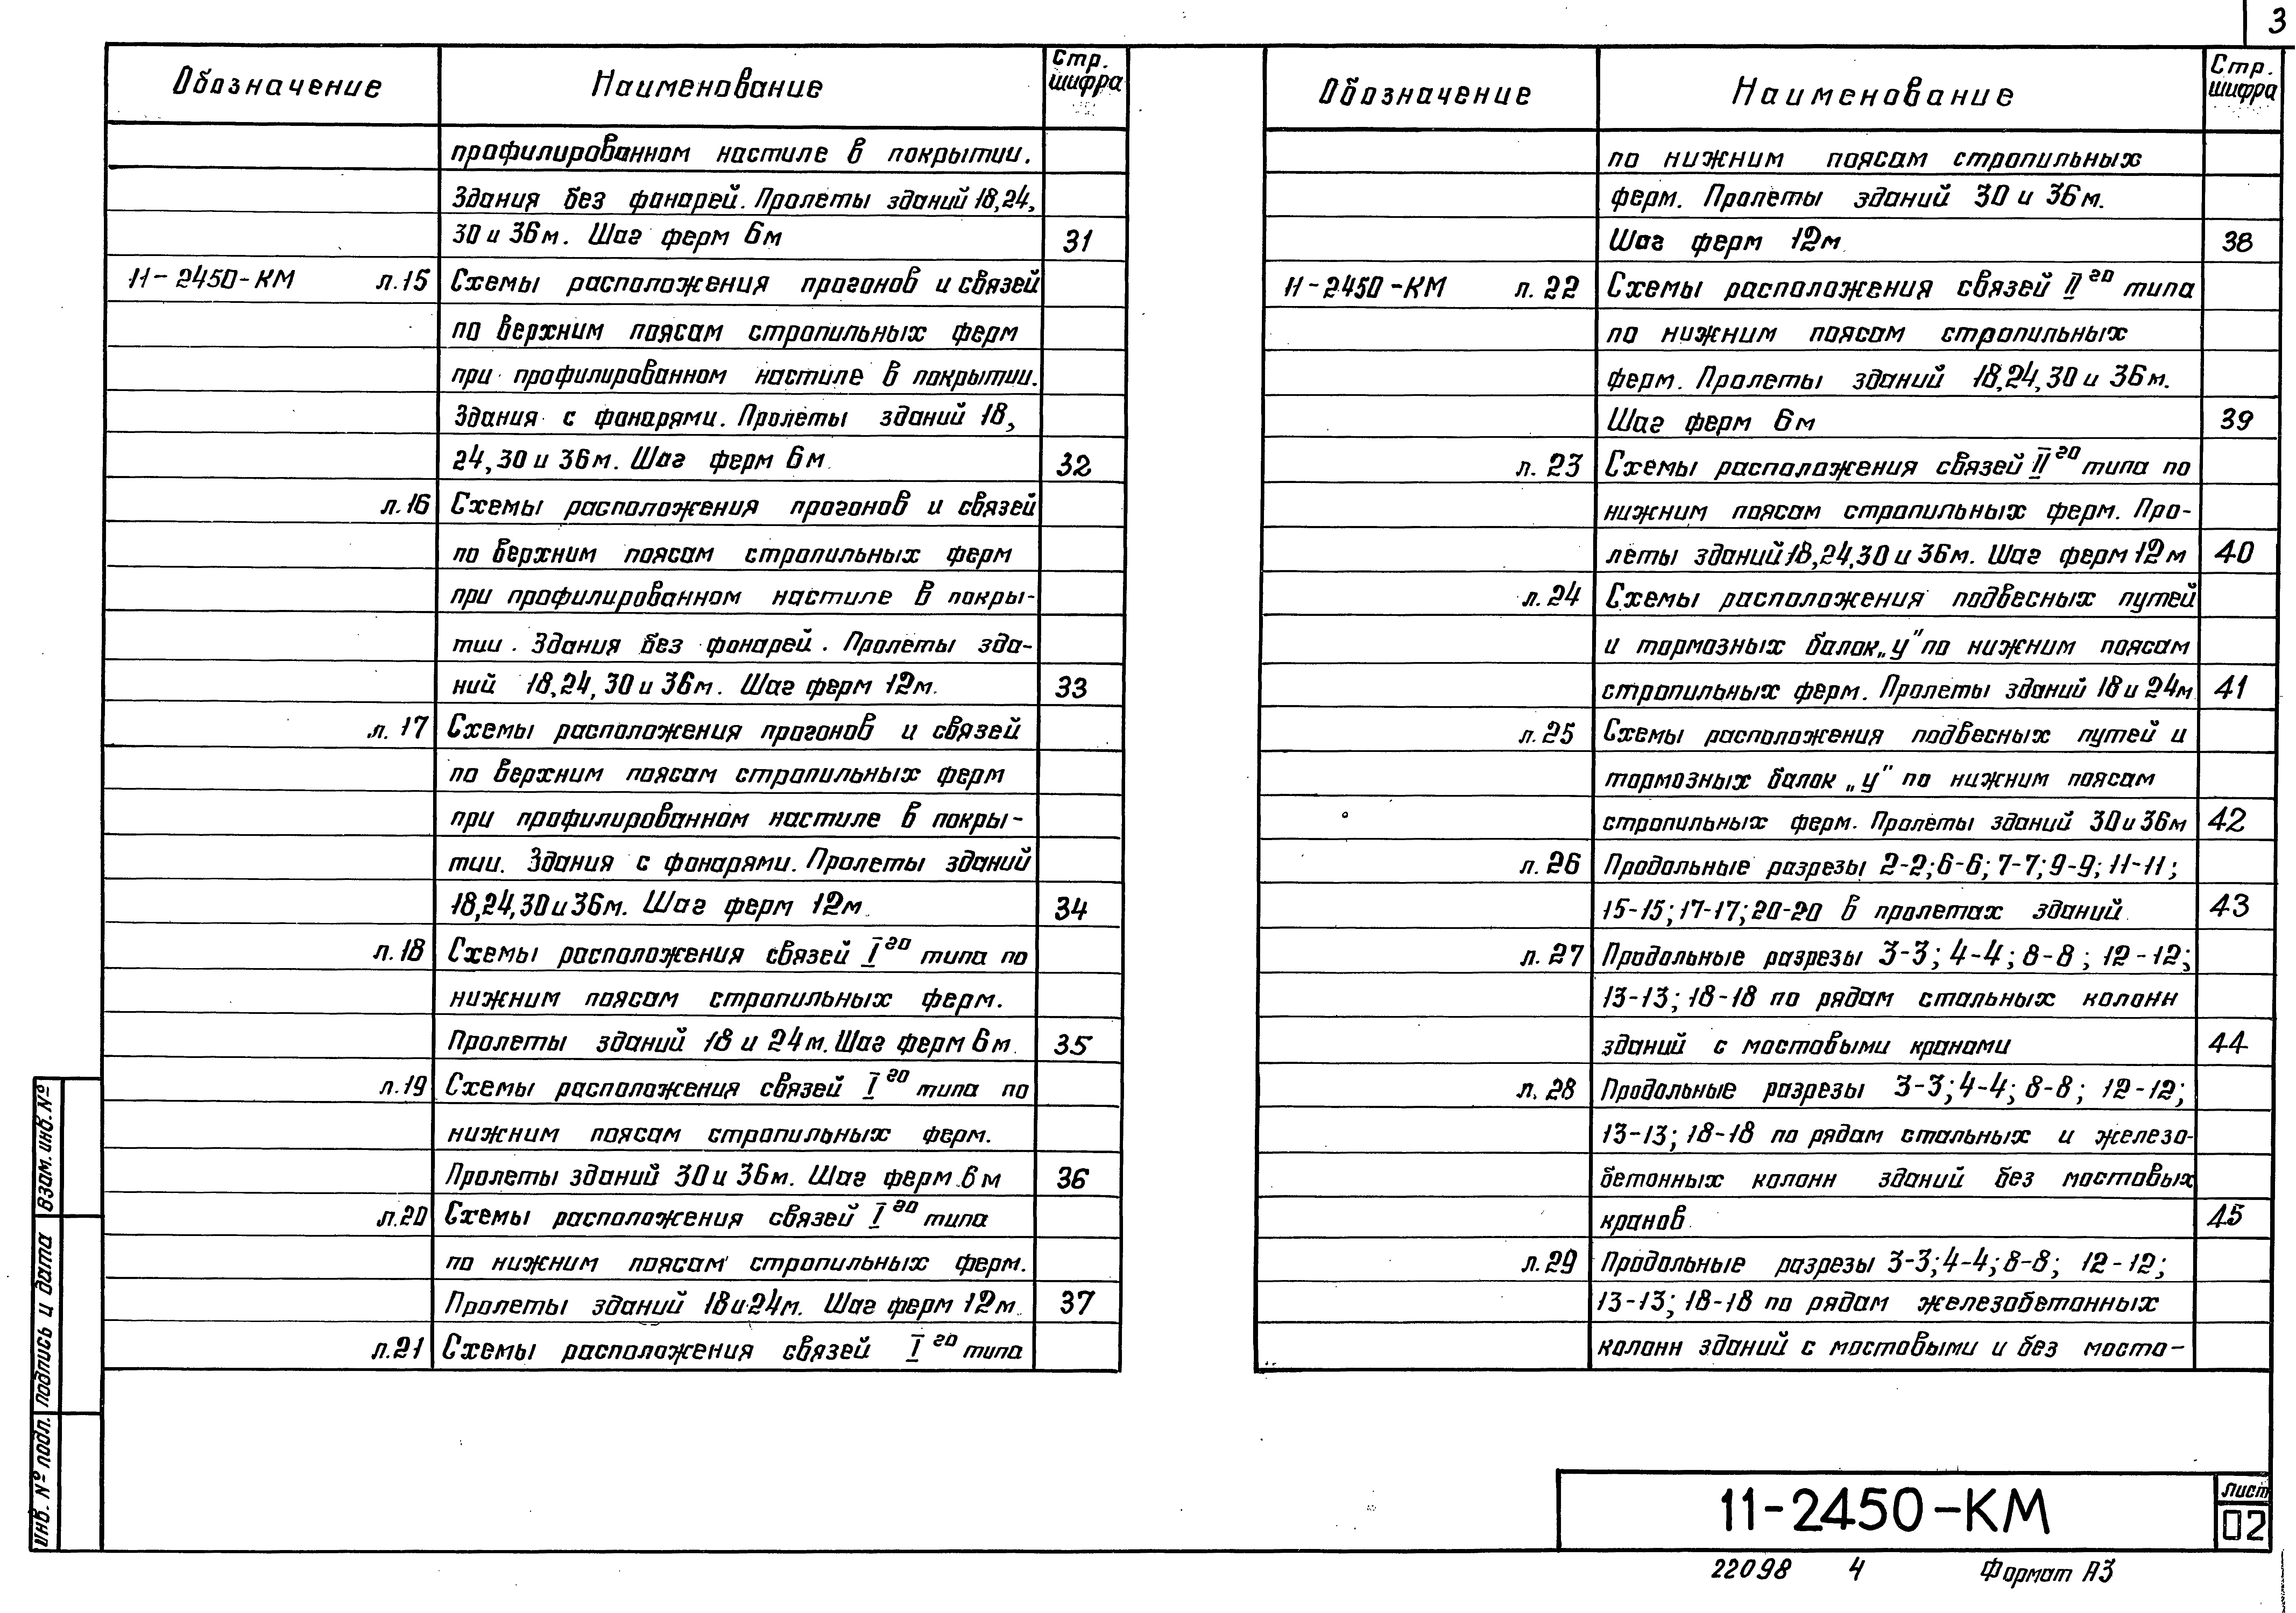 3
Обозначение Наименование Стр. шифра
профилированном настиле в покрытии.
Здания без фонарей. Пролеты зданий 18,24,
30 и 36м. Шаг ферм 6м 31
11-2450-КМ л.15 Схемы расположения прогонов и связей
по верхним поясам стропильных ферм
при профилированном настиле в покрытии.
Здания с фонарями. Пролеты зданий 18,
24,30 и 36м. Шаг ферм 6м 32
л.16 Схемы расположения прогонов и связей
по верхним поясам стропильных ферм
при профилированном настиле в покры-
тии. Здания без фонарей. Пролеты зда-
ний 18,24,30 и 36м. Шаг ферм 12м. 33
л. 17 Схемы расположения прогонов и связей
по верхним поясам стропильных ферм
при профилированном настиле в покры-
тии. Здания с фонарями. Пролеты зданий
18,24,30 и 36м. Шаг ферм 12м 34
л.18 Схемы расположения связей I го типа по
нижним поясам стропильных ферм.
Пролеты зданий 18 и 24м. Шаг ферм 6м 35
л.19 Схемы расположения связей I го типа по
нижним поясам стропильных ферм.
Пролеты зданий 30 и 36м. Шаг ферм 6м 36
л.20 Схемы расположения связей I го типа
по нижним поясам стропильных ферм.
Пролеты зданий 18 и 24м. Шаг ферм 12м 37
л.21 Схемы расположения связей I го типа
Обозначение Наименование Стр. шифра
по нижним поясам стропильных
ферм. Пролеты зданий 30 и 36м.
Шаг ферм 12м 38
11-2450-КМ л. 22 Схемы расположения связей II го типа
по нижним поясам стропильных
ферм. Пролеты зданий 18,24,30 и 36м.
Шаг ферм 6м 39
л. 23 Схемы расположения связей II го типа по
нижним поясам стропильных ферм. Про-
леты зданий 18,24,30 и 36м. Шаг ферм 12м 40
л.24 Схемы расположения подвесных путей
и тормозных балок „У" по нижним поясам
стропильных ферм. Пролеты зданий 18 и 24м 41
л.25 Схемы расположения подвесных путей и
тормозных балок „У" по нижним поясам
стропильных ферм. Пролеты зданий 30 и 36м 42
л.26 Продольные разрезы 2-2; 6-6; 7-7; 9-9; 11-11;
15-15; 17-17; 20-20 в пролетах зданий 43
л.27 Продольные разрезы 3-3; 4-4; 8-8; 12-12;
13-13; 18-18 по рядам стальных колонн
зданий с мостовыми кранами 44
л. 28 Продольные разрезы 3-3; 4-4; 8-8; 12-12;
13-13; 18-18 по рядам стальных и железо-
бетонных колонн зданий без мостовых
кранов 45
л.29 Продольные разрезы 3-3; 4-4; 8-8; 12-12;
13-13; 18-18 по рядам железобетонных
колонн зданий с мостовыми и без мосто-
Взам. инв. №
Подпись и дата
Инв. № подл.
11-2450-КМ
Лист
02
22098 4 Формат А3